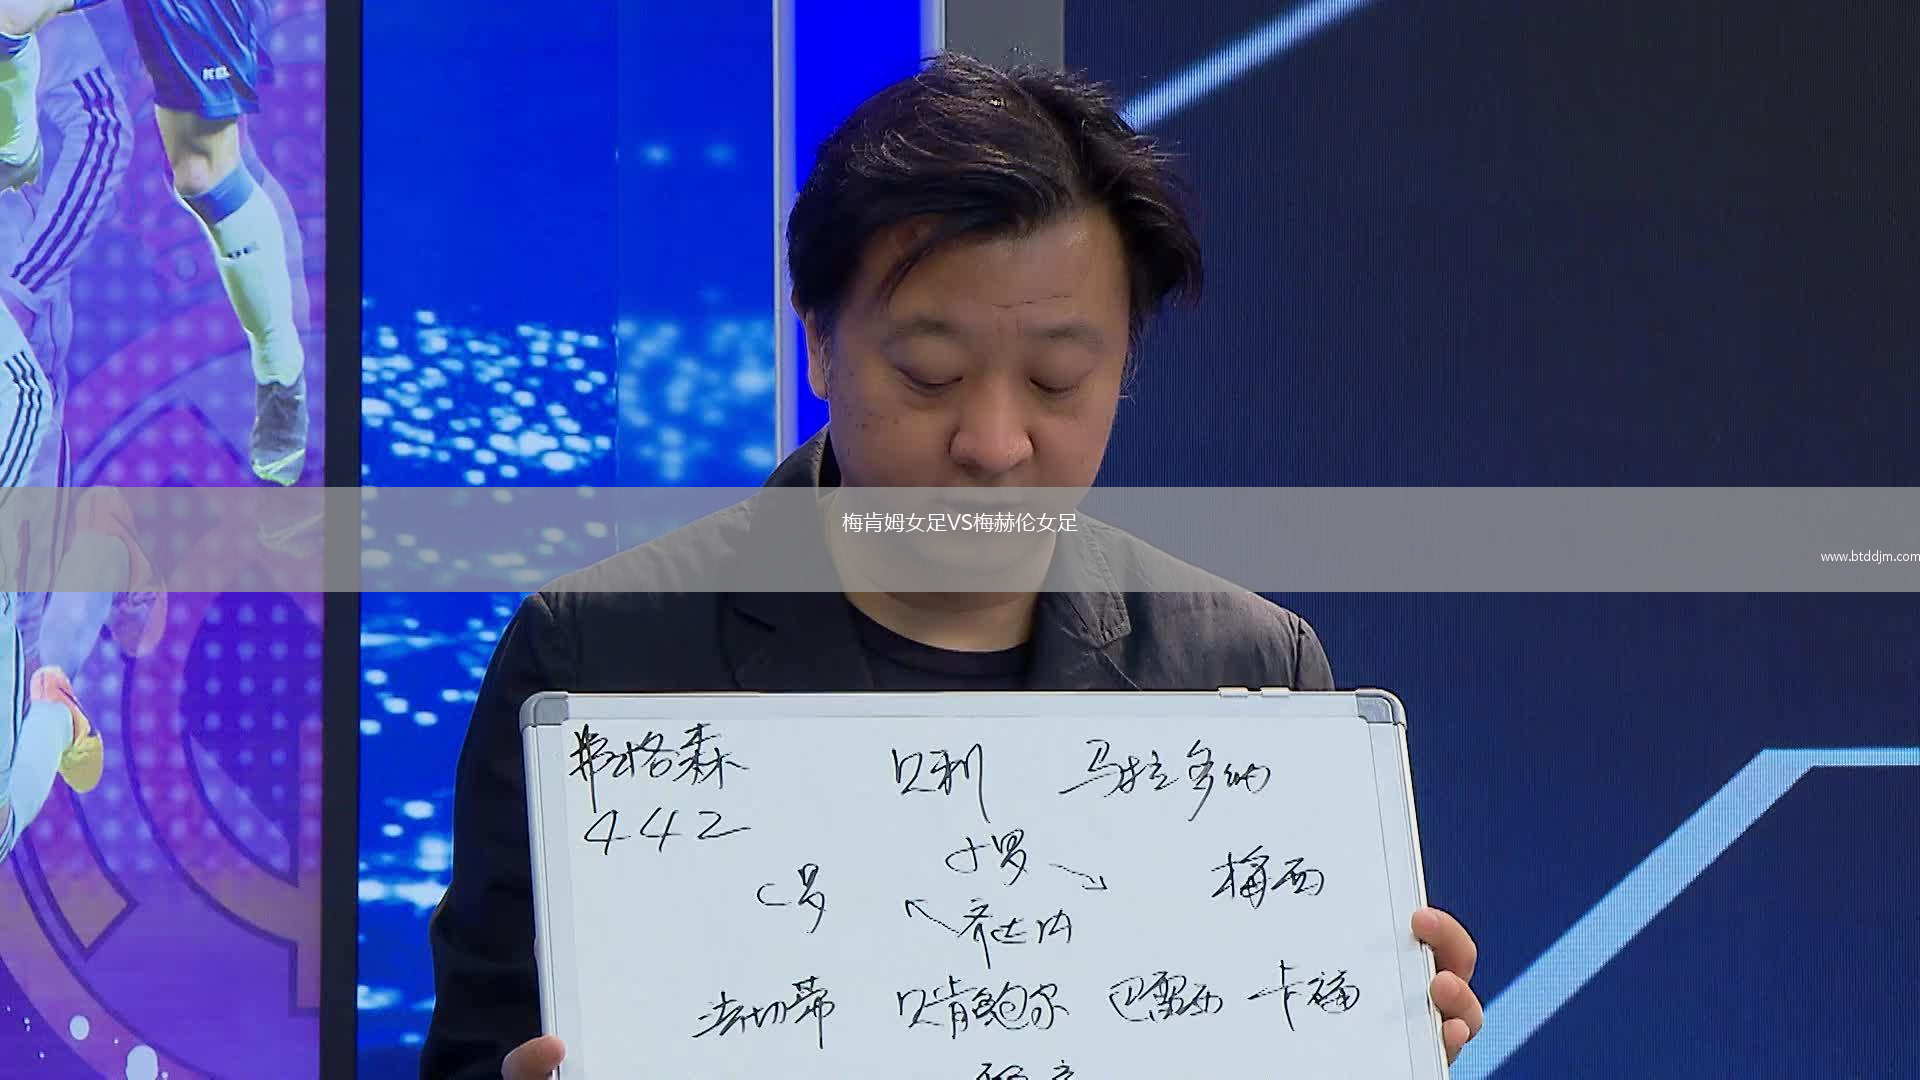 梅肯姆女足VS梅赫伦女足
www.btddjm.com
弗格森 贝利 马拉多纳
442
小罗
C罗 梅西
齐达内
法切蒂 贝肯鲍尔 巴雷西 卡福